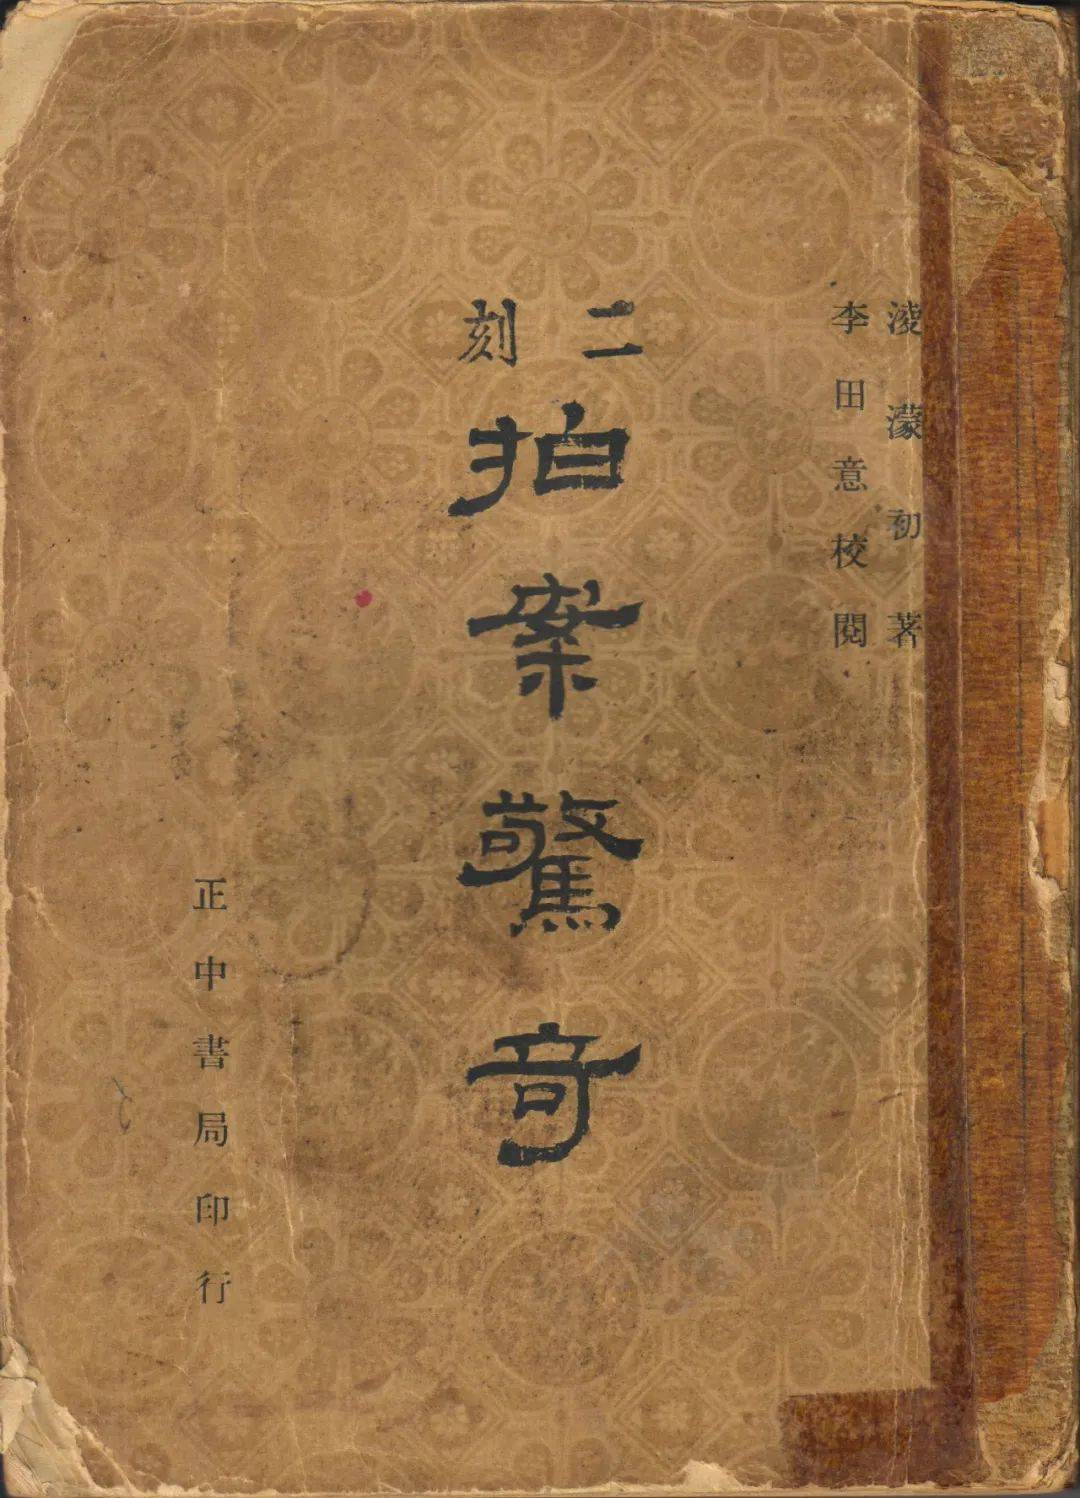 淩濛初著
李田意校閱
二刻
拍案驚奇
正中書局印行